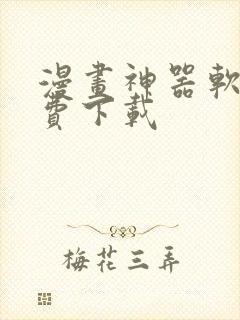 漫畫神器軟
費下載
梅花三弄